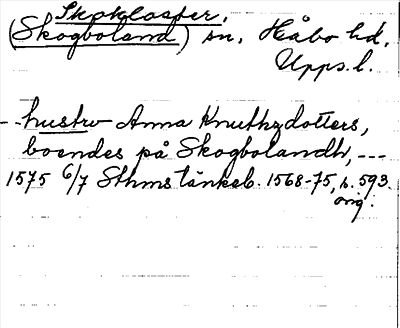 Skokloster,
(Skogboland) sn, Håbo hd,
Upps. l.
-- hustrv Anna Knuthzdotters,
boendes på Skogbolandh, ---
1575 6/7 Sthms tänkeb. 1568-75, s. 593.
orig.